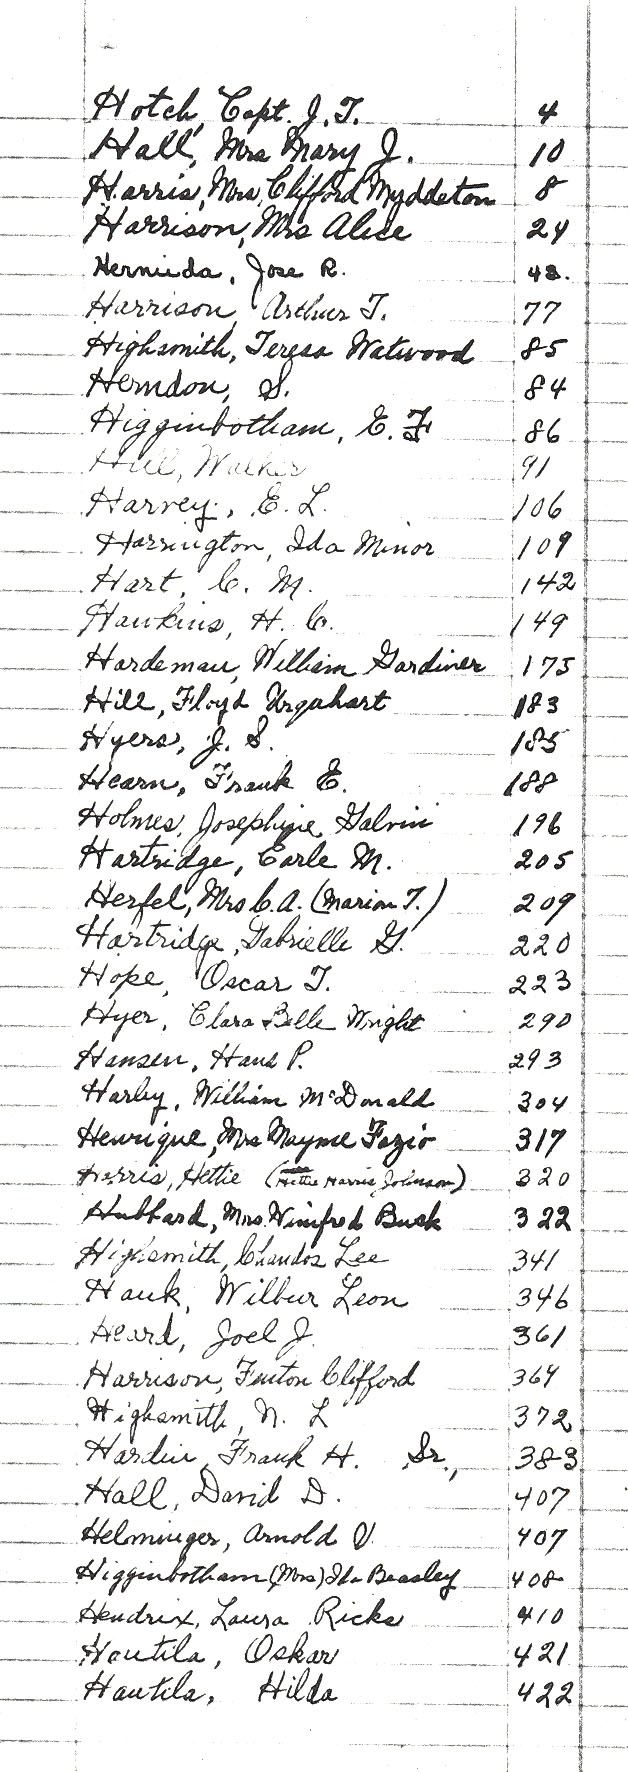 Hotch, Capt. J. T. 4
Hall, Mrs Mary J. 10
Harris, Mrs, Clifford Myddeton 8
Harrison, Mrs Alice 24
Hermida, Jose R. 43.
Harrison, Arthur T. 77
Highsmith, Teresa Watwood 85
Herndon, S. 84
Higginbotham, E. F 86
Hull, Walker 91
Harvey, E. L. 106
Harrington, Ida Minor 109
Hart, C. M. 142
Hawkins, H. C. 149
Hardeman, William Gardiner 175
Hill, Floyd Urquhart 183
Hyers, J. S. 185
Hearn, Frank E. 188
Holmes, Josephine Galvin 196
Hartridge, Earle M. 205
Herfel, Mrs C. A. (Marion T.) 209
Hartridge, Gabrielle G. 220
Hope, Oscar T. 223
Hyer, Clara Belle Wright 290
Hansen, Hans P. 293
Harby, William McDonald 304
Henrique, Mrs Mayme Fazio 317
Harris, Hettie (Hettie Harris Johnson) 320
Hubbard, Mrs. Winifred Busk 322
Highsmith, Chandos Lee 341
Hauk, Wilbur Leon 346
Heard, Joel J. 361
Harrison, Finton Clifford 364
Highsmith, N. L 372
Hardin, Frank H. Sr., 383
Hall, David D. 407
Helminger, Arnold O. 407
Higginbotham (Mrs) Ida Beasley 408
Hendrix, Laura Ricks 410
Hautila, Oskar 421
Hautila, Hilda 422